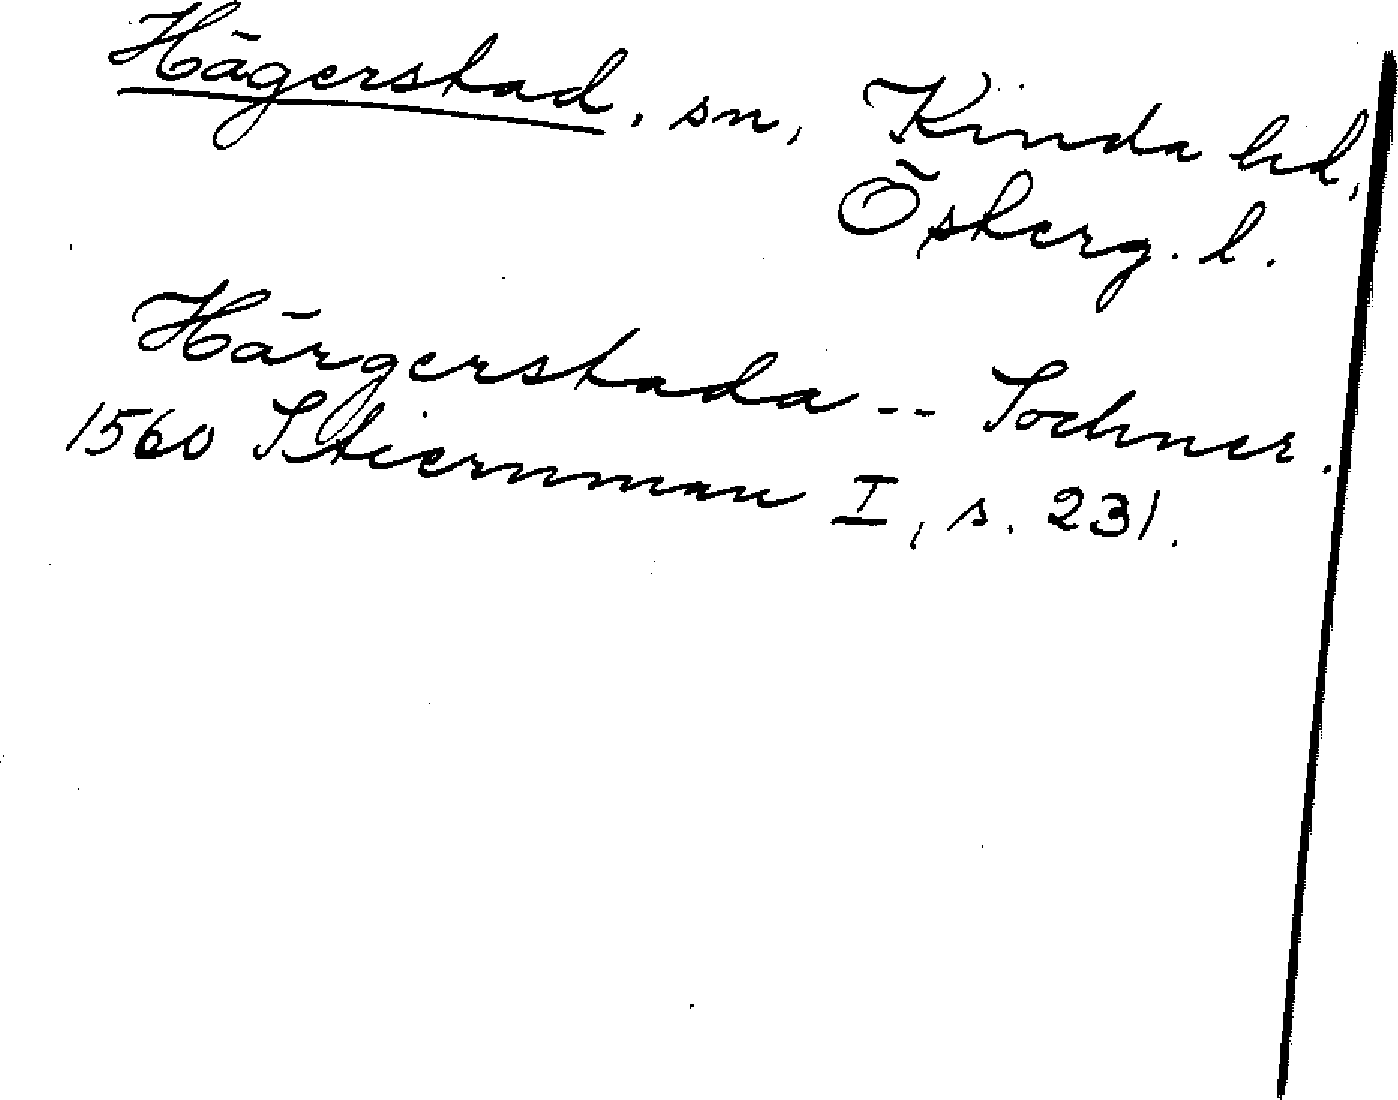 Hägerstad, sn, Kinda hd,
Österg. l.
Härgerstada -- Sochner.
1560 Stiernman I, s. 231.